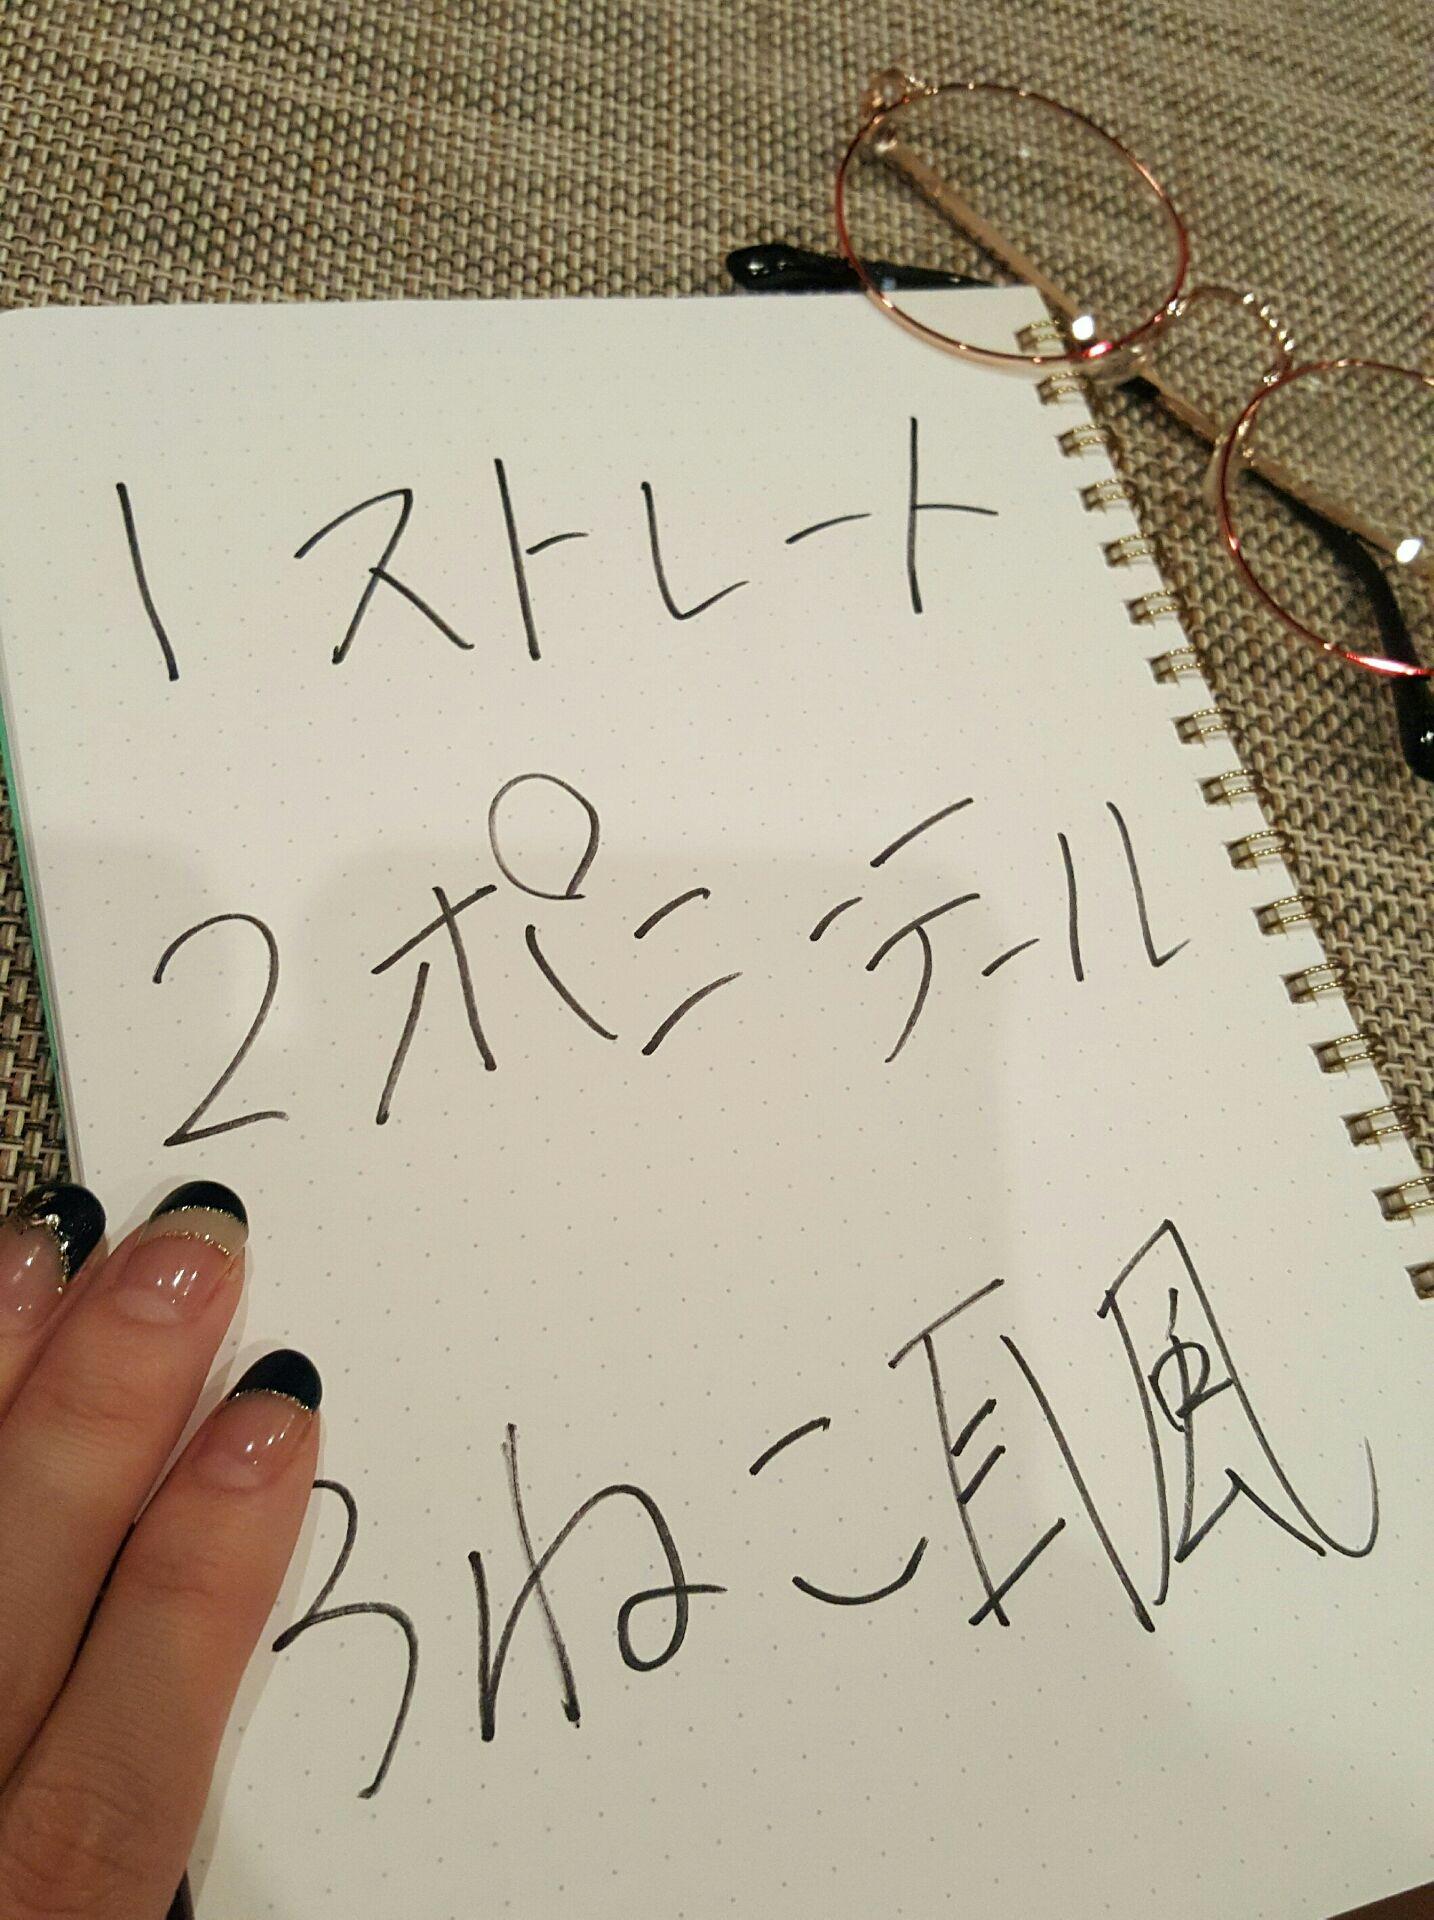 1 ストレート
2 ポニーテール
3 ねこ耳風